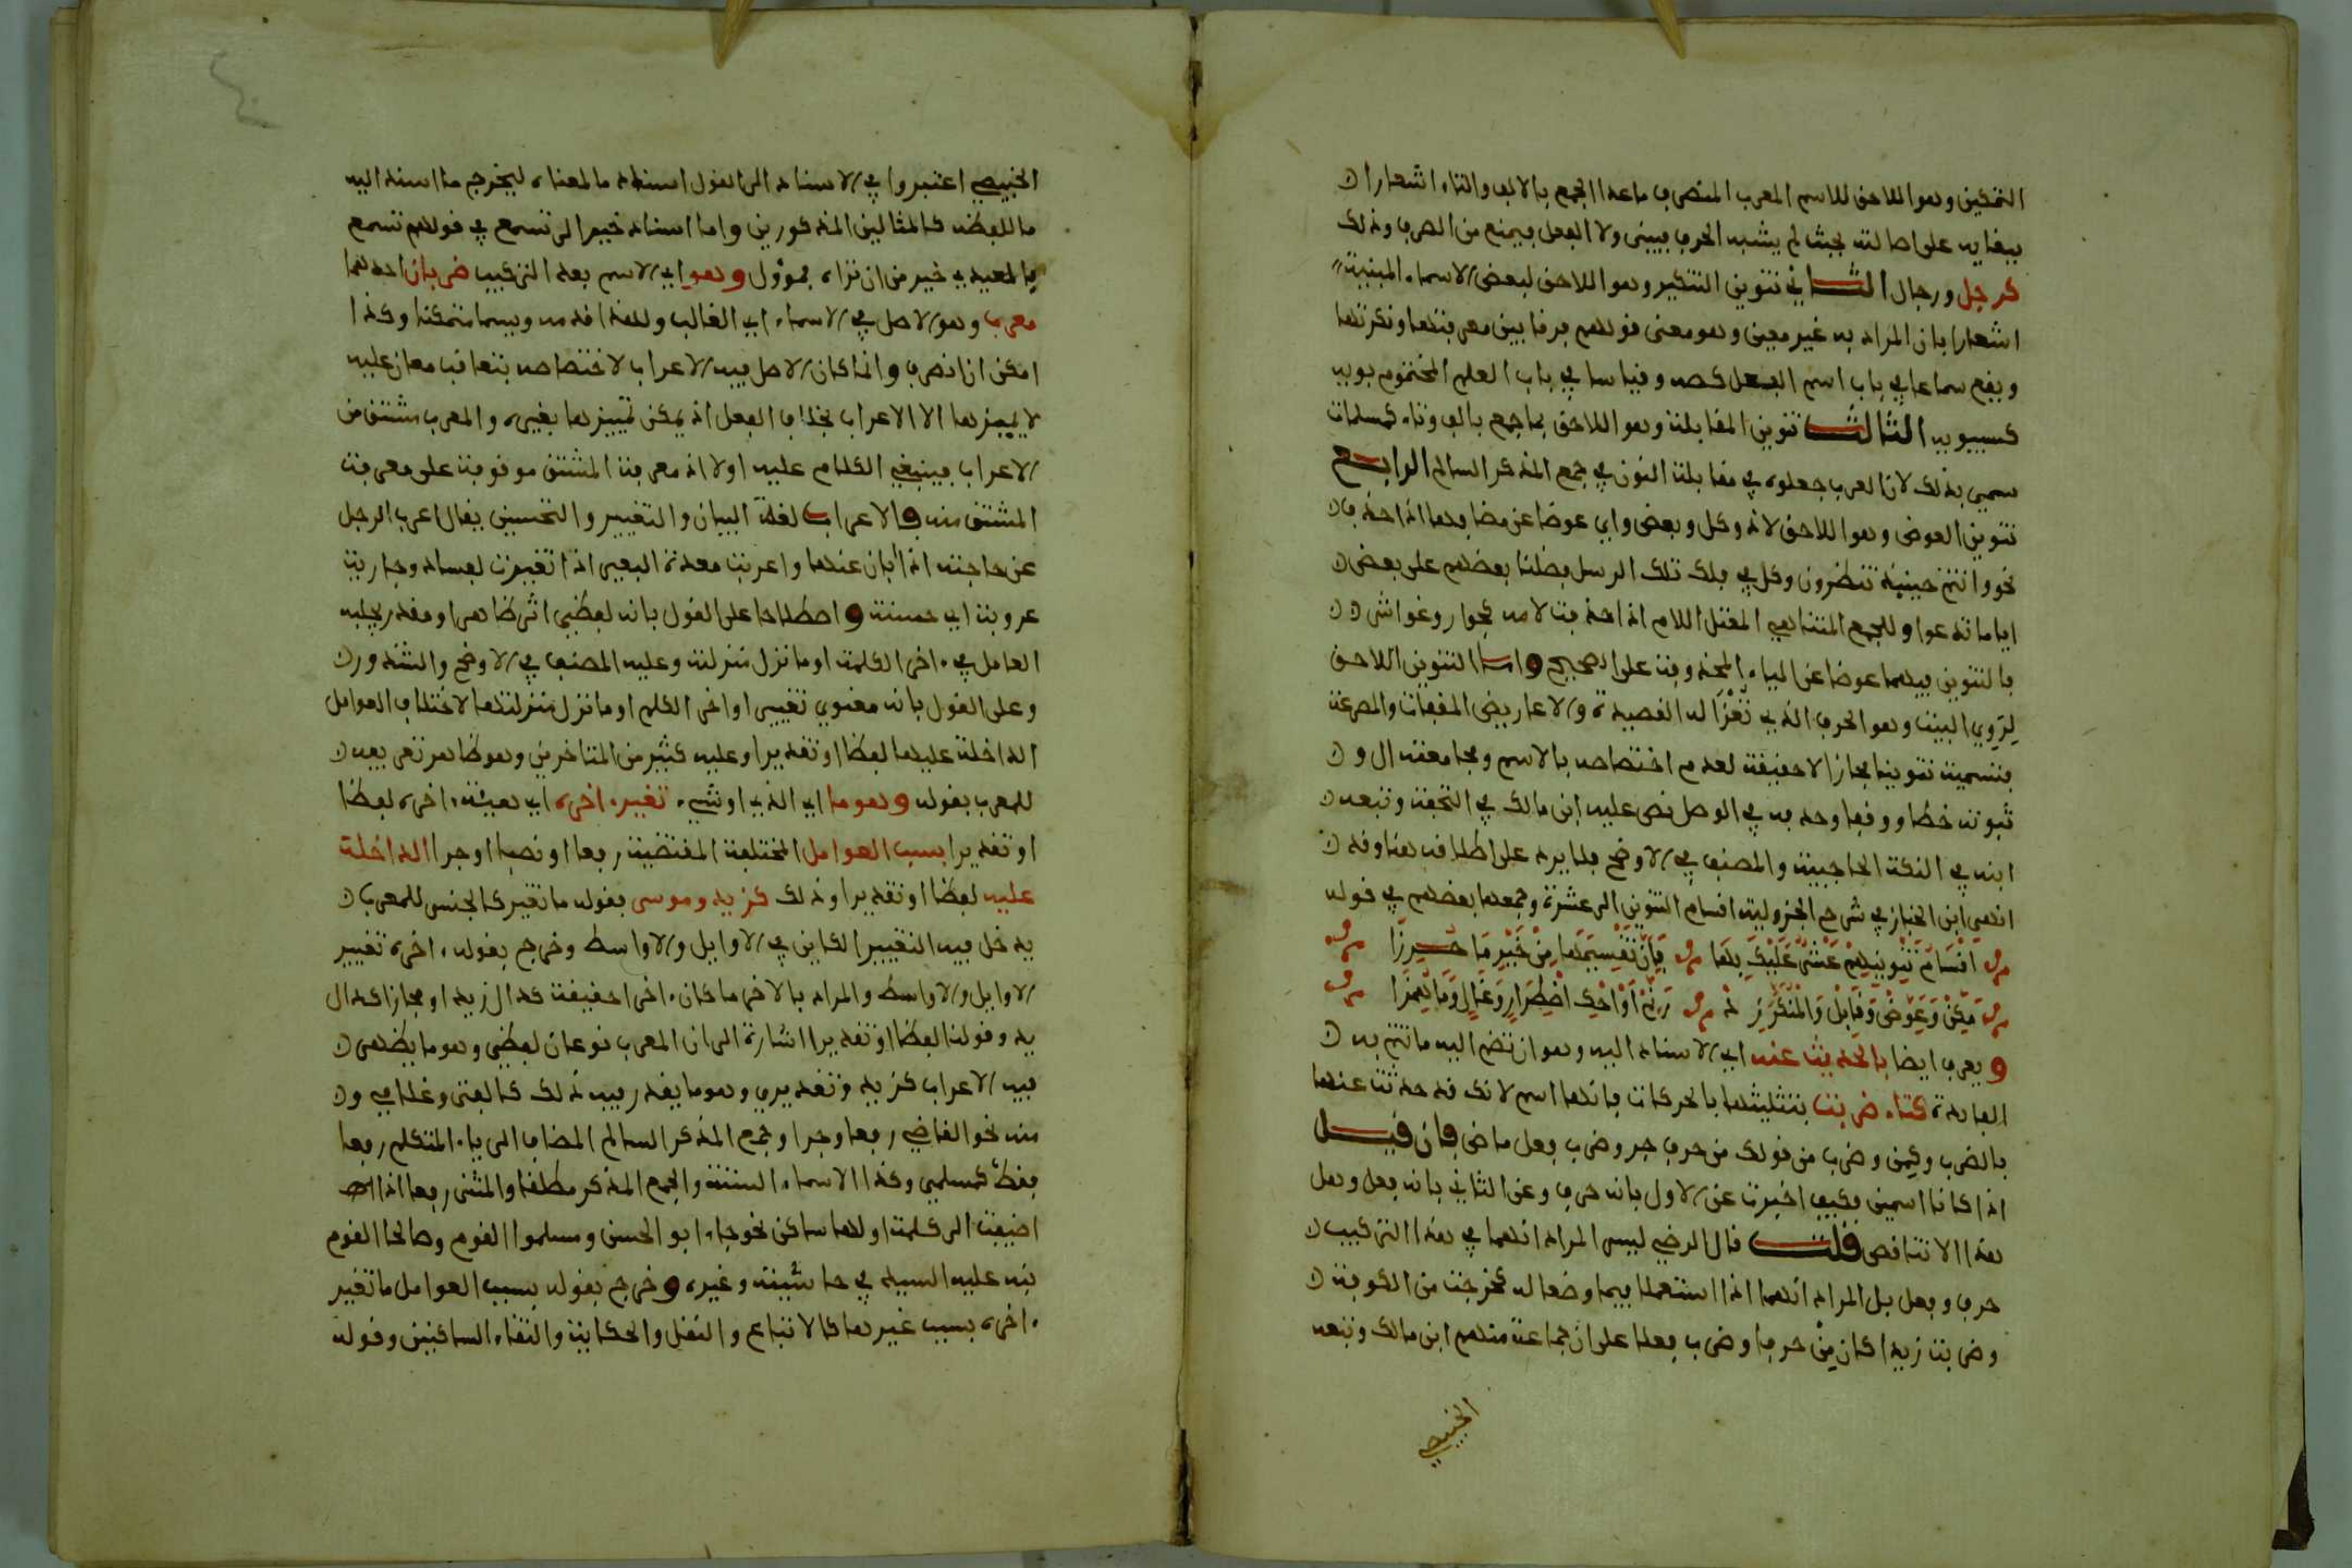 التمكين وهو اللاحق للاسم المعرب المنصرف ماعدا الجمع بالالف والتاء اشعارا
ببقايه على اصالته بحيث لم يشبه الحرف فيبنى ولا الفعل فيمنع من الصرف وذلك
كرجل ورجال الثاني تنوين التنكير وهو اللاحق لبعض الاسماء المبنية
اشعارا بان المراد به غير معين وهو معنى قولهم فرقا بين معرفتها ونكرتها
ويقع سماعا في باب اسم الفعل كصه وقياسا في باب العلم المختوم بويه
كسيبويه الثالث تنوين المقابلة وهو اللاحق لما جمع بالف وتاء كمسلمات
سمي بذلك لان العرب جعلوه في مقابلة النون في جمع المذكر السالم الرابع
تنوين العوض وهو اللاحق لاذ وكل وبعض واي عوضا عن مضافها اذا حذف
نحو وانتم حينيذ تنظرون وكل في فلك تلك الرسل فضلنا بعضهم على بعض
اياما تدعوا وللجمع المتناهي المعتل اللام اذا حذفت لامه كجوار وغواش
فالتنوين فيهما عوضا عن الياء المحذوفة على الصحيح واما التنوين اللاحق
لروي البيت وهو الحرف الذي تعزا له القصيدة والاعاريض المقفات والمصرعة
فتسميته تنوينا مجازا لا حقيقة لعدم اختصاصه بالاسم ومجامعته ال و
ثبوته خطا ووقفا وحذفه في الوصل نص عليه ابن مالك في التحفة وتبعه
ابنه في النكة الحاجبية والمصنف في الاوضح فلا يرد على اطلاقه هنا وقد
انهى ابن الخباز في شرح الجزولية اقسام التنوين الى عشرة وجمعها بعضهم في قوله
اقسام تنوينهم عشر عليك بها فان تقسيمها من خير ما حرزا
مكن وعوض وقابل والمنكر زد رنم او احك اضطرار وغال وما همزا
ويعرف ايضا بالحديث عنه اي الاسناد اليه وهو ان تضم اليه ما تتم به
الفايدة كتاء ضربت بتثليثها بالحركات فانها اسم لانك قد حدثت عنها
بالضرب وكمن وضرب من قولك من حرف جر وضرب فعل ماض فان قيل
اذا كانا اسمين فكيف اخبرت عن الاول بانه حرف وعن الثاني بانه فعل وهل
هذا الا تناقض قلت قال الرضي ليس المراد انهما في هذا التركيب
حرف وفعل بل المراد انهما اذا استعملا فيما وضعا له كخرجت من الكوفة
وضربت زيدا كان من حرفا وضرب فعلا على ان جماعة منهم ابن مالك وتبعه
الخبيصي
الخبيصي اعتبروا في الاسناد الى القول اسناد ما لمعناه ليخرج ما اسند اليه
ما للفظه كالمثالين المذكورين واما اسناد خير الى تسمع في قولهم تسمع
بالمعيدي خير من ان تراه فمؤول وهو اي الاسم بعد التركيب ضربان احدهما
معرب وهو الاصل في الاسماء اي الغالب ولهذا قدمه ويسما متمكنا وكذا
امكن ان انصرف وانما كان الاصل فيه الاعراب لاختصاصه بتعاقب معان عليه
لا يميزها الا الاعراب بخلاف الفعل اذ يمكن تمييزها بغيره والمعرب مشتق من
الاعراب فينبغي الكلام عليه اولا اذ معرفة المشتق موقوفة على معرفة
المشتق منه والاعراب لغة البيان والتغيير والتحسين يقال اعرب الرجل
عن حاجته اذا ابان عنها واعربت معدة البعير اذا تغيرت لفساد وجارية
عروبة اي حسنة واصطلاحا على القول بانه لفظي اثر ظاهر او مقدر يجلبه
العامل في ءاخر الكلمة او ما نزل منزلته وعليه المصنف في الاوضح والشذور
وعلى القول بانه معنوي تغيير اواخر الكلم او ما نزل منزلتها لاختلاف العوامل
الداخلة عليها لفظا او تقديرا وعليه كثير من المتاخرين وهو ظاهر تعريفه
للمعرب بقوله وهو ما اي الذي او شيء تغير ءاخره اي هيئة ءاخره لفظا
او تقديرا بسبب العوامل المختلفة المقتضية رفعا او نصبا او جرا الداخلة
عليه لفظا او تقديرا وذلك كزيد وموسى فقوله ما تغير كالجنس للمعرب
يدخل فيه التغيير الكاين في الاوايل والاواسط وخرج بقوله ءاخره تغيير
الاوايل والاواسط والمراد بالاخر ما كان ءاخرا حقيقة كدال زيد او مجازا كدال
يد وقولنا لفظا او تقديرا اشارة الى ان المعرب نوعان لفظي وهو ما يظهر
فيه الاعراب كزيد وتقديري وهو ما يقدر فيه ذلك كالفتى وغلامي و
منه نحو القاضي رفعا وجرا وجمع المذكر السالم المضاف الى ياء المتكلم رفعا
فقط كمسلمي وكذا الاسماء الستة والجمع المذكر مطلقا والمثنى رفعا اذا
اضيفت الى كلمة اولها ساكن نحو جاء ابو الحسن ومسلموا القوم وصالحا القوم
نبه عليه السيد في حاشيته وغيره وخرج بقوله بسبب العوامل ما تغير
ءاخره بسبب غيرها كالاتباع والنقل والحكاية والتقاء الساكنين وقوله